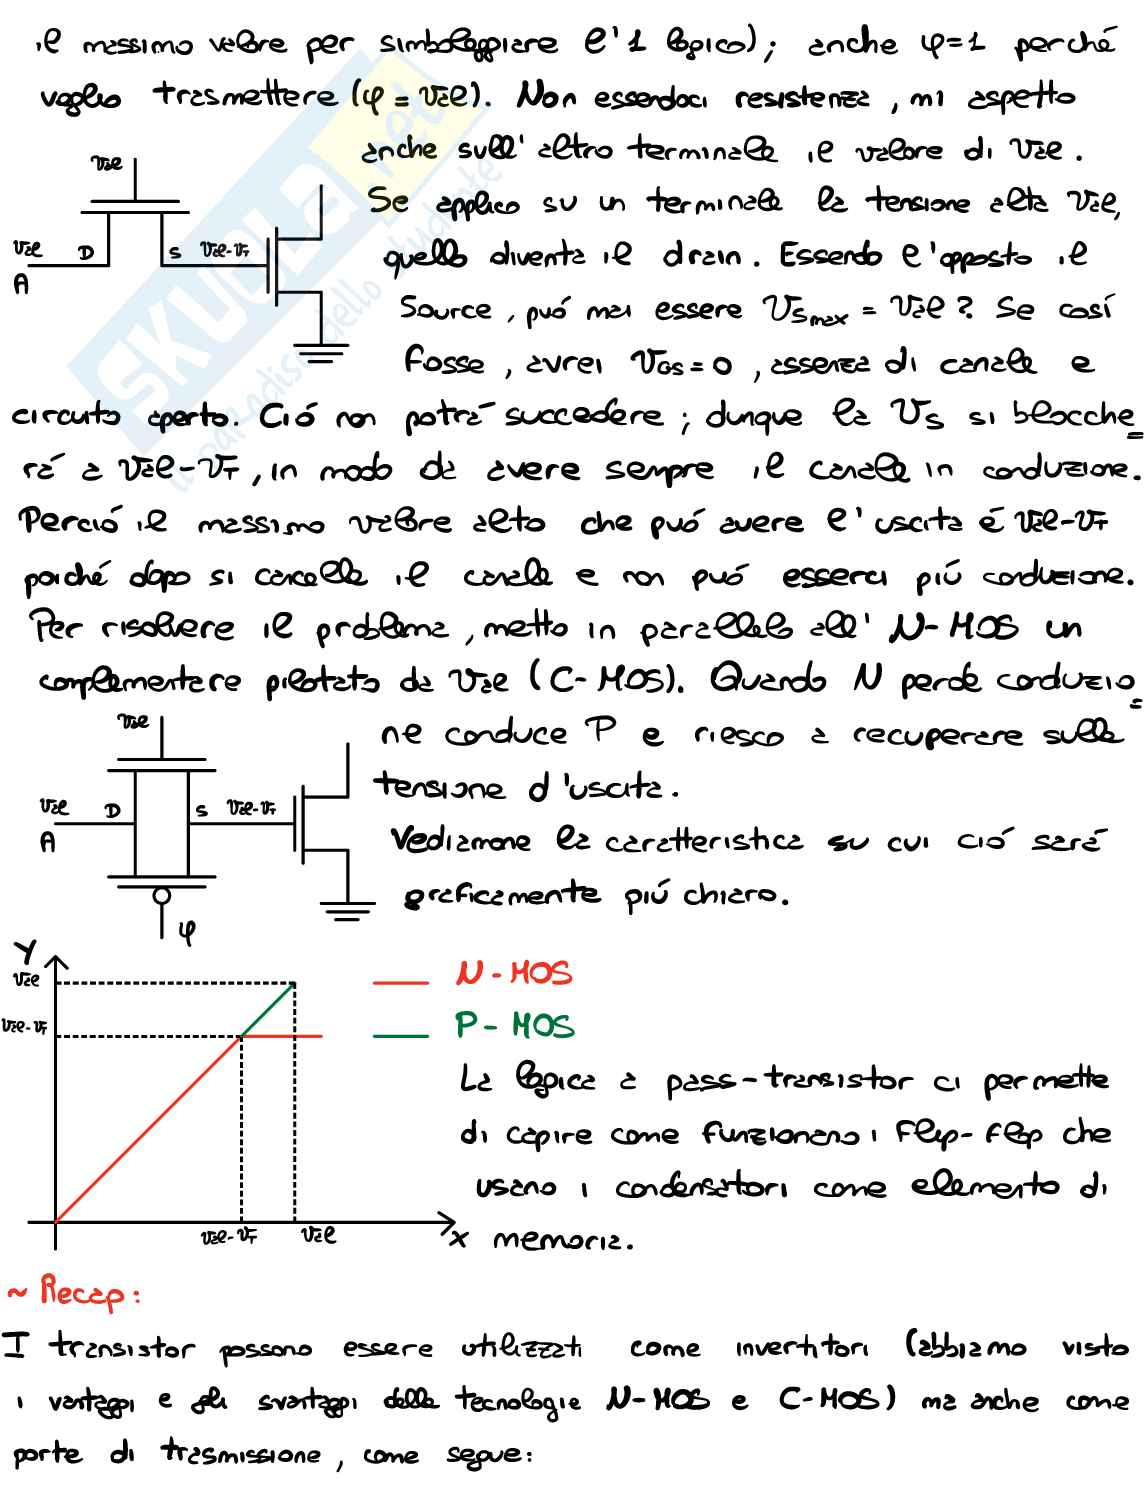 il massimo valore per simboleggiare l'1 logico); anche φ=1 perché
voglio trasmettere (φ = Val). Non essendoci resistenza, mi aspetto
anche sull'altro terminale il valore di Val.
Se applico su un terminale la tensione alta Val,
quello diventa il drain. Essendo l'opposto il
Source, può mai essere VSmax = Val? Se così
fosse, avrei VGS=0, assenza di canale e
circuito aperto. Ció non potrá succedere; dunque la VS si blocche
rá a Val-VT, in modo da avere sempre il canale in conduzione.
Perció il massimo valore alto che puó avere l'uscita é Val-VT
poiché dopo si cancella il canale e non puó esserci piú conduzione.
Per risolvere il problema, metto in parallelo all'N-MOS un
complementare pilotato da Val (C-MOS). Quando N perde conduzio
ne conduce P e riesco a recuperare sulla
tensione d'uscita.
Vediamone la caratteristica su cui ció sará
graficamente piú chiaro.
Val
Val
D
S
Val-VT
A
Val
Val
D
S
Val-VT
A
φ
Y
Val
Val-VT
Val-VT
Val
x
N-MOS
P-MOS
La logica a pass-transistor ci permette
di capire come funzionano i Flip-flop che
usano i condensatori come elemento di
memoria.
~ Recap:
I transistor possono essere utilizzati come invertitori (abbiamo visto
i vantaggi e gli svantaggi delle tecnologie N-MOS e C-MOS) ma anche come
porte di trasmissione, come segue:
SKUOLA.net
il paradiso dello studente